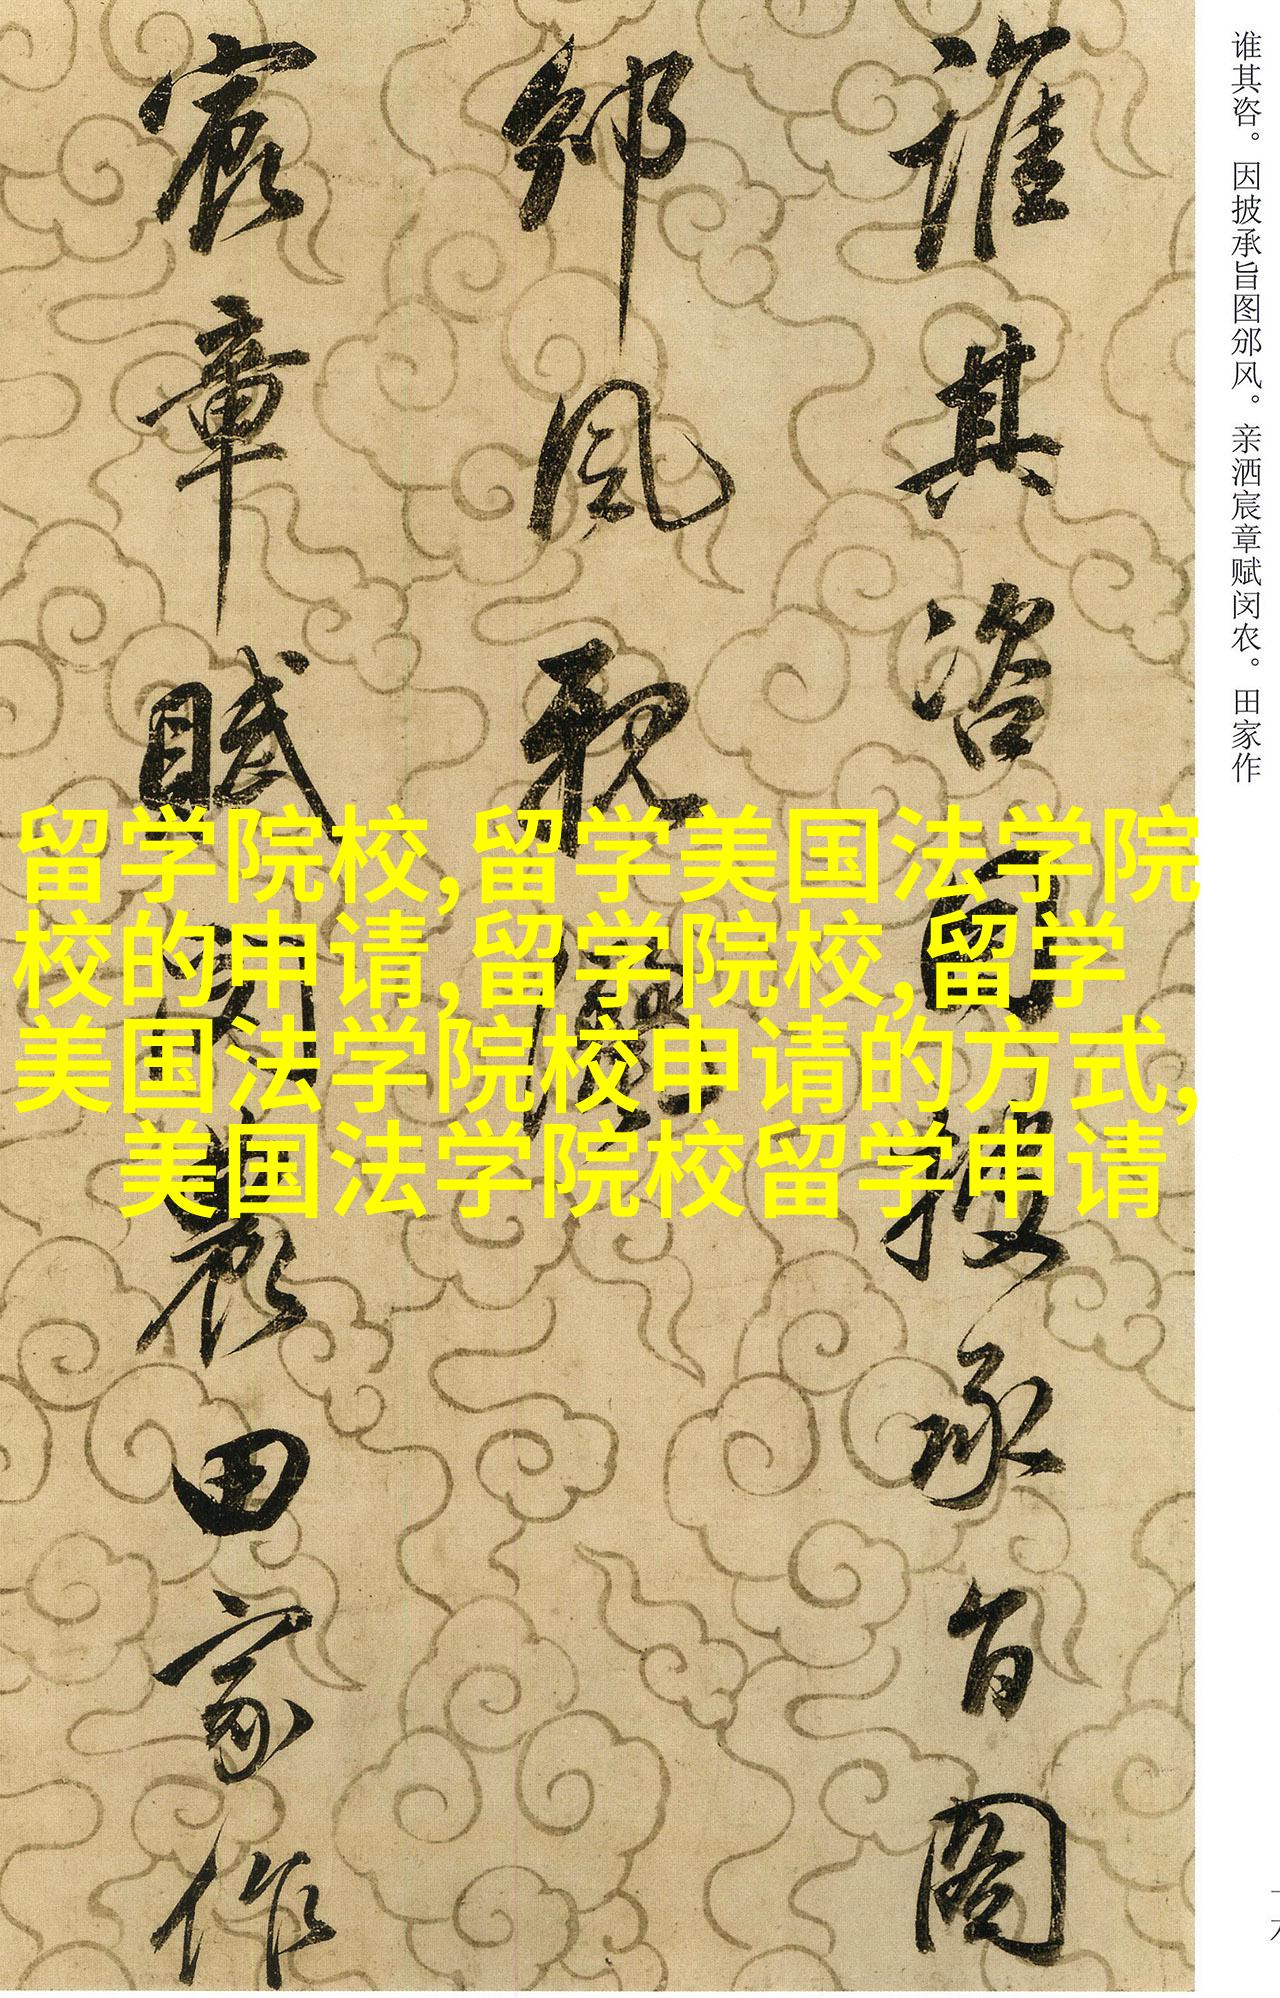 谁其咨。因披承旨图邠风。亲洒宸章赋闵农。田家作
誰其咨因披承旨圖
邠風親灑
宸章賦閔農田家作
留学院校,留学美国法学院
校的申请,留学院校,留学
美国法学院校申请的方式,
美国法学院校留学申请